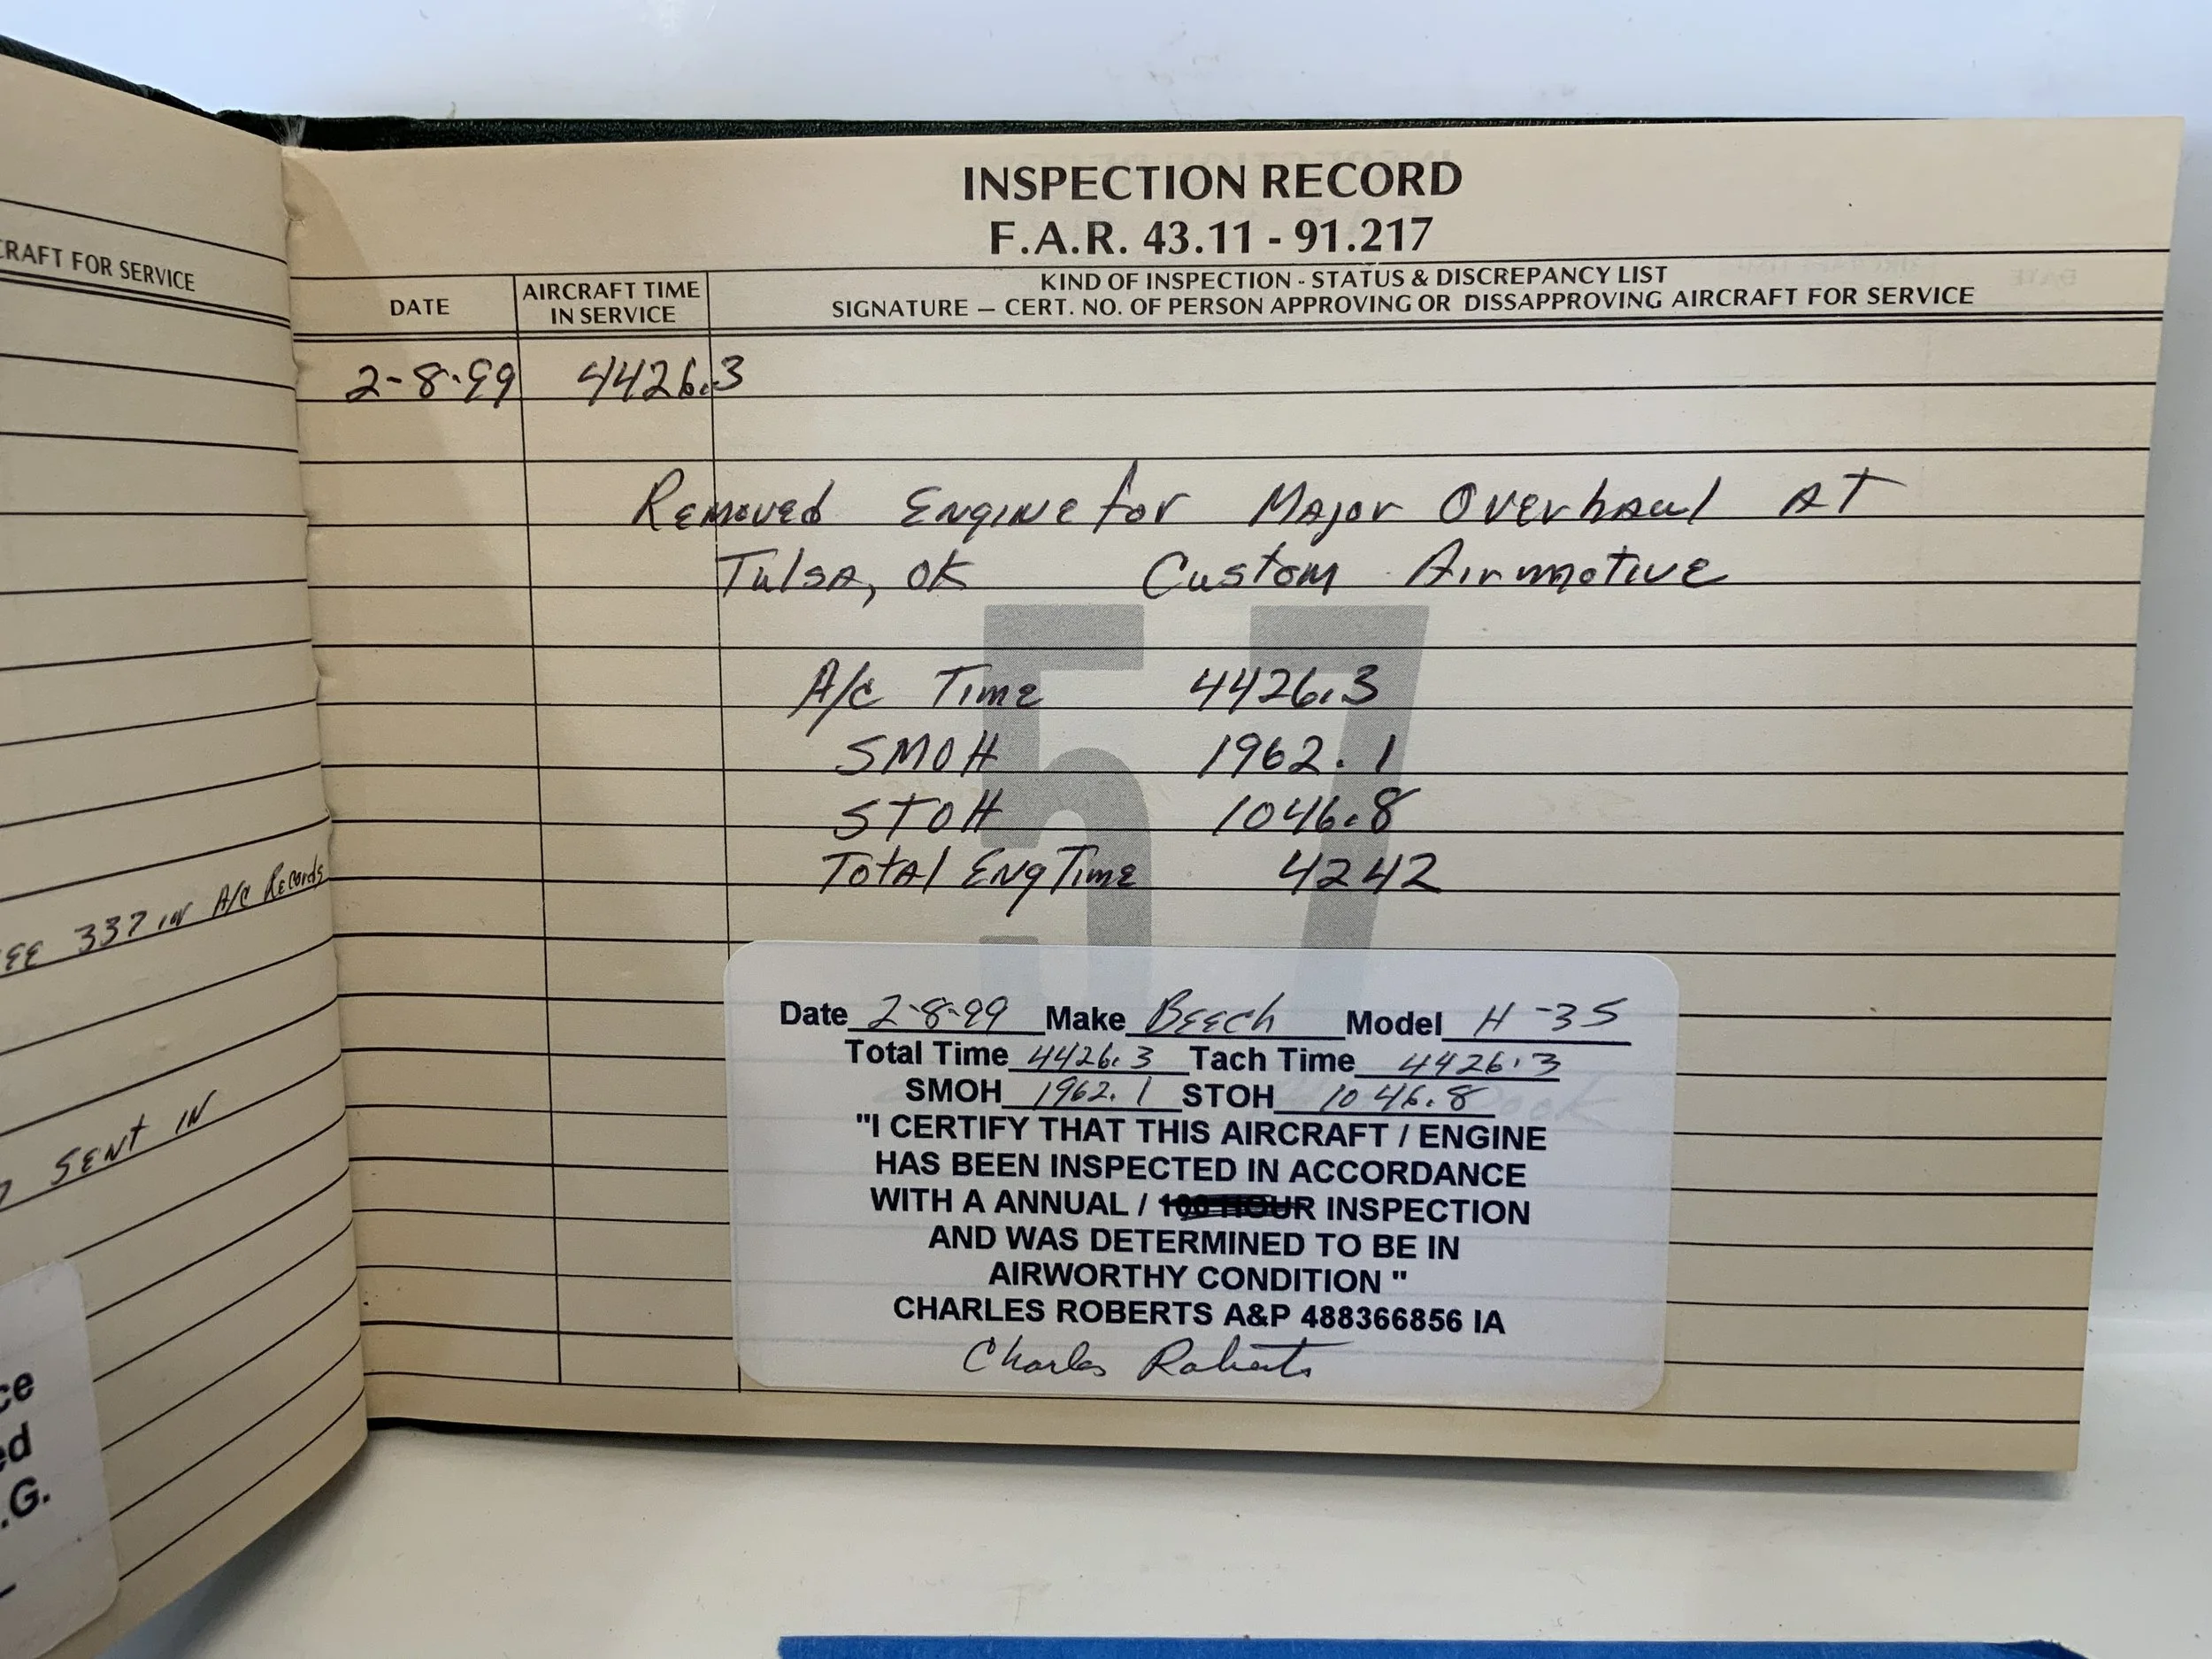 CRAFT FOR SERVICE
EE 337 in A/c Records
SENT IN
ce
ed
.G.
INSPECTION RECORD
F.A.R. 43.11 - 91.217
DATE
AIRCRAFT TIME
IN SERVICE
KIND OF INSPECTION - STATUS & DISCREPANCY LIST
SIGNATURE — CERT. NO. OF PERSON APPROVING OR DISSAPPROVING AIRCRAFT FOR SERVICE
2-8-99 4426.3
Removed Engine for Major Overhaul AT
Tulsa, OK Custom Airmotive
57
A/c Time 4426.3
SMOH 1962.1
STOH 1046.8
Total Eng Time 4242
Date 2-8-99 Make Beech Model H-35
Total Time 4426.3 Tach Time 4426.3
SMOH 1962.1 STOH 1046.8
"I CERTIFY THAT THIS AIRCRAFT / ENGINE
HAS BEEN INSPECTED IN ACCORDANCE
WITH A ANNUAL / 100 HOUR INSPECTION
AND WAS DETERMINED TO BE IN
AIRWORTHY CONDITION "
CHARLES ROBERTS A&P 488366856 IA
Charles Roberts